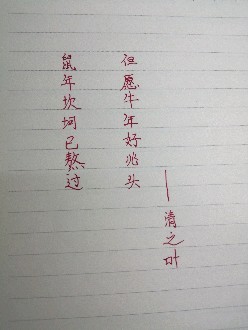 鼠年坎坷已熬过
但愿牛年好兆头
——清之叶